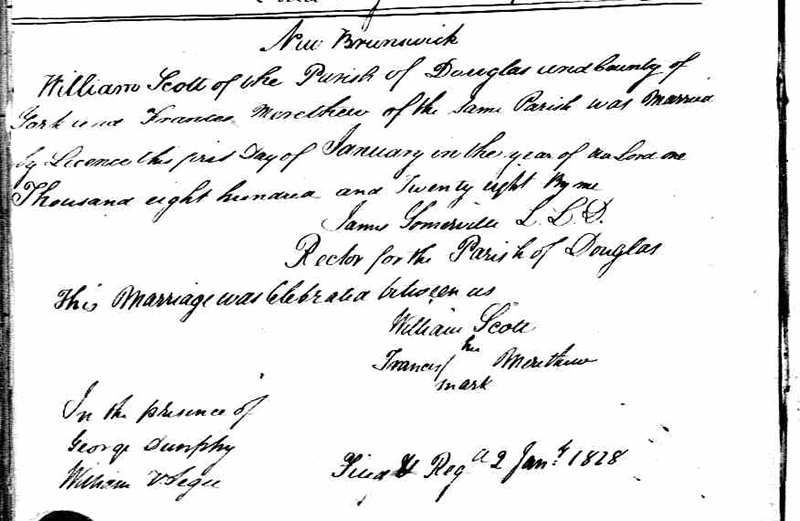 New Brunswick
William Scott of the Parish of Douglas and County of
York and Frances Merethew of the Same Parish was Married
by Licence this first Day of January in the year of our Lord one
Thousand eight hundred and Twenty eight By me
James Somerville L. L. D.
Rector for the Parish of Douglas
This Marriage was Celebrated between us
William Scott
her
Frances Merethew
mark
In the presence of
George Dunphy
William V Segee
Filed & Regd 2 Jany 1828